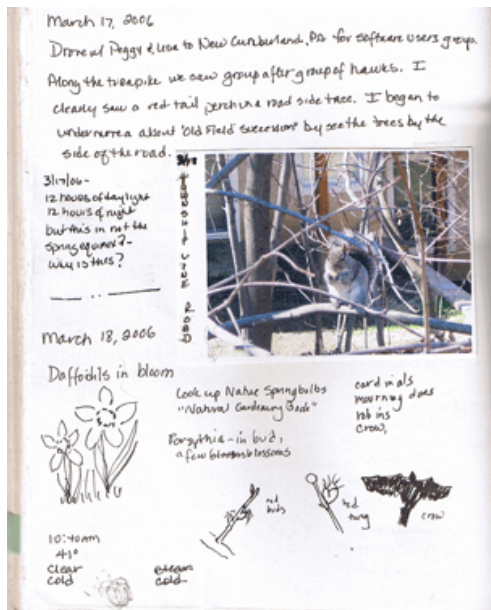 March 17, 2006
Drove w/ Peggy & Lisa to New Cumberland, PA for software users group.
Along the turnpike we saw group after group of hawks. I
clearly saw a red tail perch in a road side tree. I began to
understand about "Old Field Succession" by see the trees by the
side of the road.
3/18
TOWNSHIP LINE ROAD
3/17/06-
12 hours of daylight
12 hours of night
but this in not the
spring equinox?-
Why is this?
March 18, 2006
Daffodils in bloom
Look up Native Spring bulbs
"Natural Gardening Book"
Forsythia - in bud,
a few blossoms
cardinals
mourning doves
robins
crow,
red
buds
red
twig
crow
10:40AM
41°
clear
cold
cold